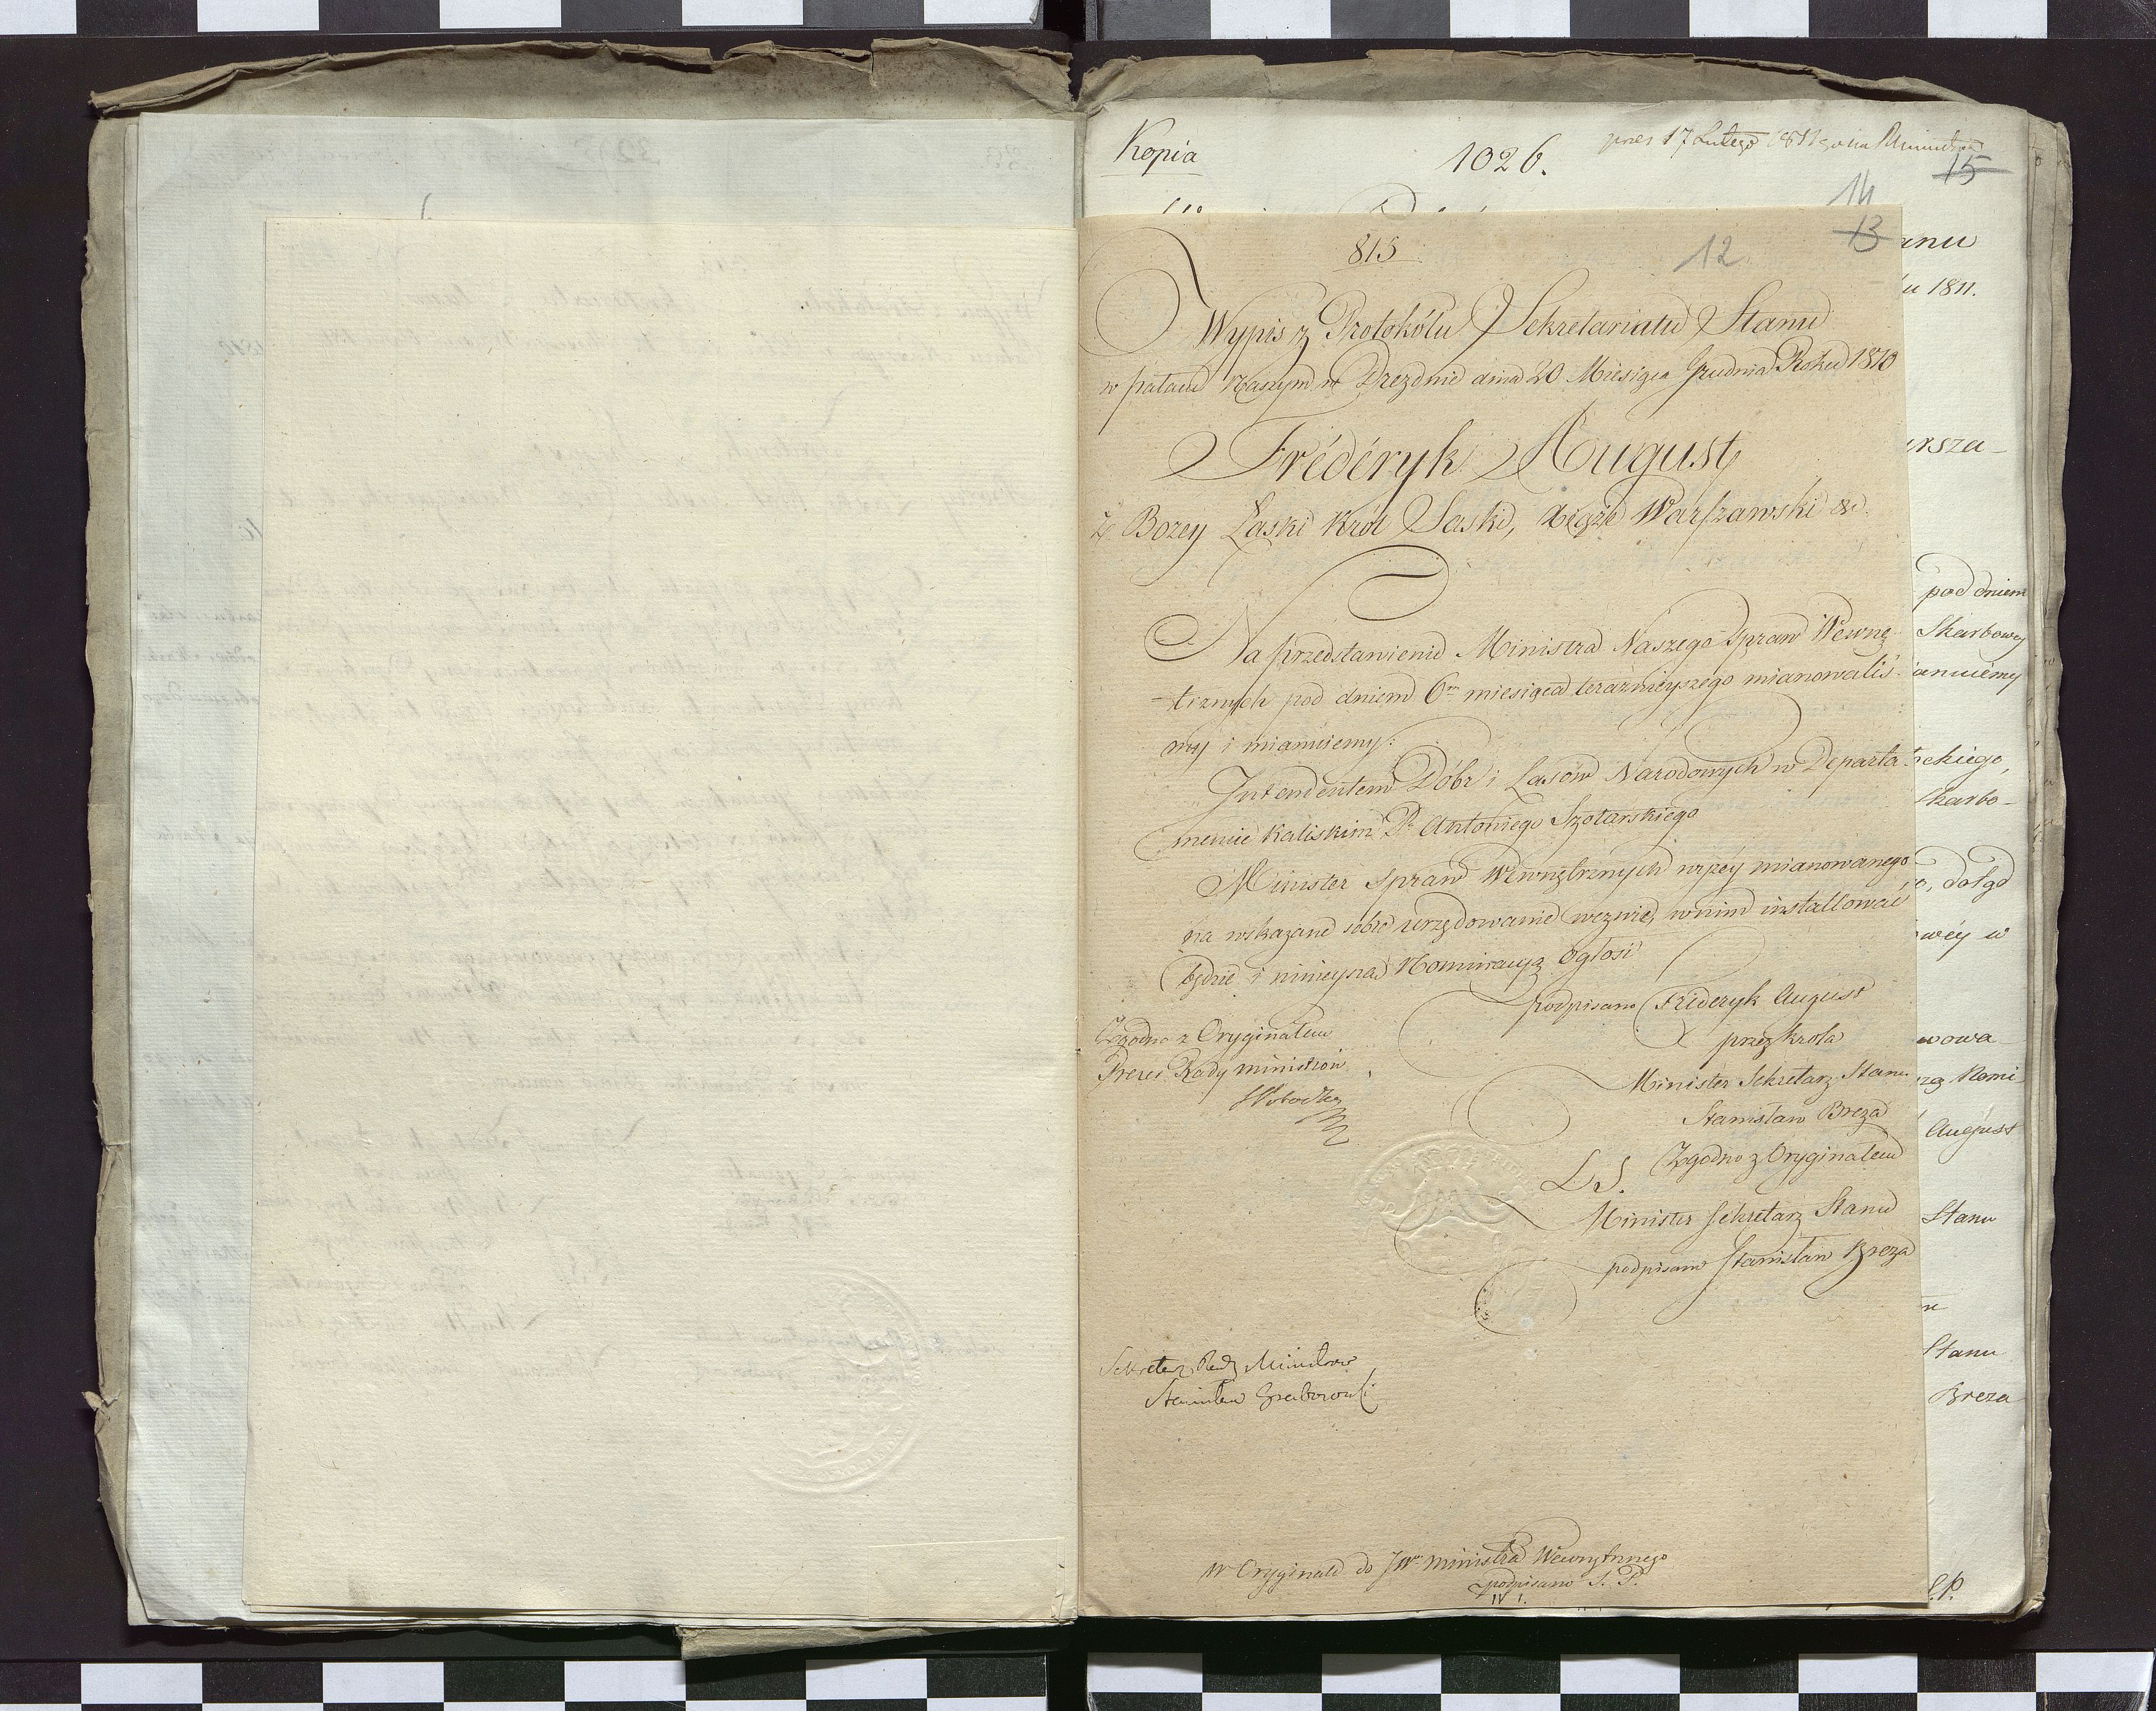 Kopia
1026.
pres 17 Lutego 1811
15
14
13
12
anu
u 1811.
815
Wypis z Protokółu Sekretariatu Stanu
w pałacu Naszym w Dreznie dnia 20 Miesiąca Grudnia Roku 1810
Fréderyk August
Z Bożey Łaski Król Saski, Xiąże Warszawski &c.
Na przedstawienie Ministra Naszego Spraw Wewnę-
-trznych pod dniem 6m miesiąca teraznieyszego mianowaliś-
my i mianuiemy:
Intendentem Dóbr i Lasów Narodowych w Departa-
mencie Kaliskim P. Antoniego Szotarskiego
Minister Spraw Wewnętrznych wyżey mianowanego
na wskazane sobie urzędowanie wezwie, w nim installować
będzie i ninieyszą Nominacyą ogłosi
podpisano Frideryk August
przez Króla
Minister Sekretarz Stanu
Stanisław Breza
Zgodno z Oryginałem
L.S.
Minister Sekretarz Stanu
podpisano Stanisław Breza
Zgodno z Oryginałem
Prezes Rady ministrów
Sekretarz Rady Ministrów
Stanisław Grabowski
W Oryginale do JW. ministra Wewnętrznego
podpisano S. P.
rsza-
pod dniem
Skarbowey
anuiemy
ckiego,
Skarbo-
o, dotąd
owéy w
wowa
rą Nomi-
August
Stanu
Stanu
Breza
S.P.